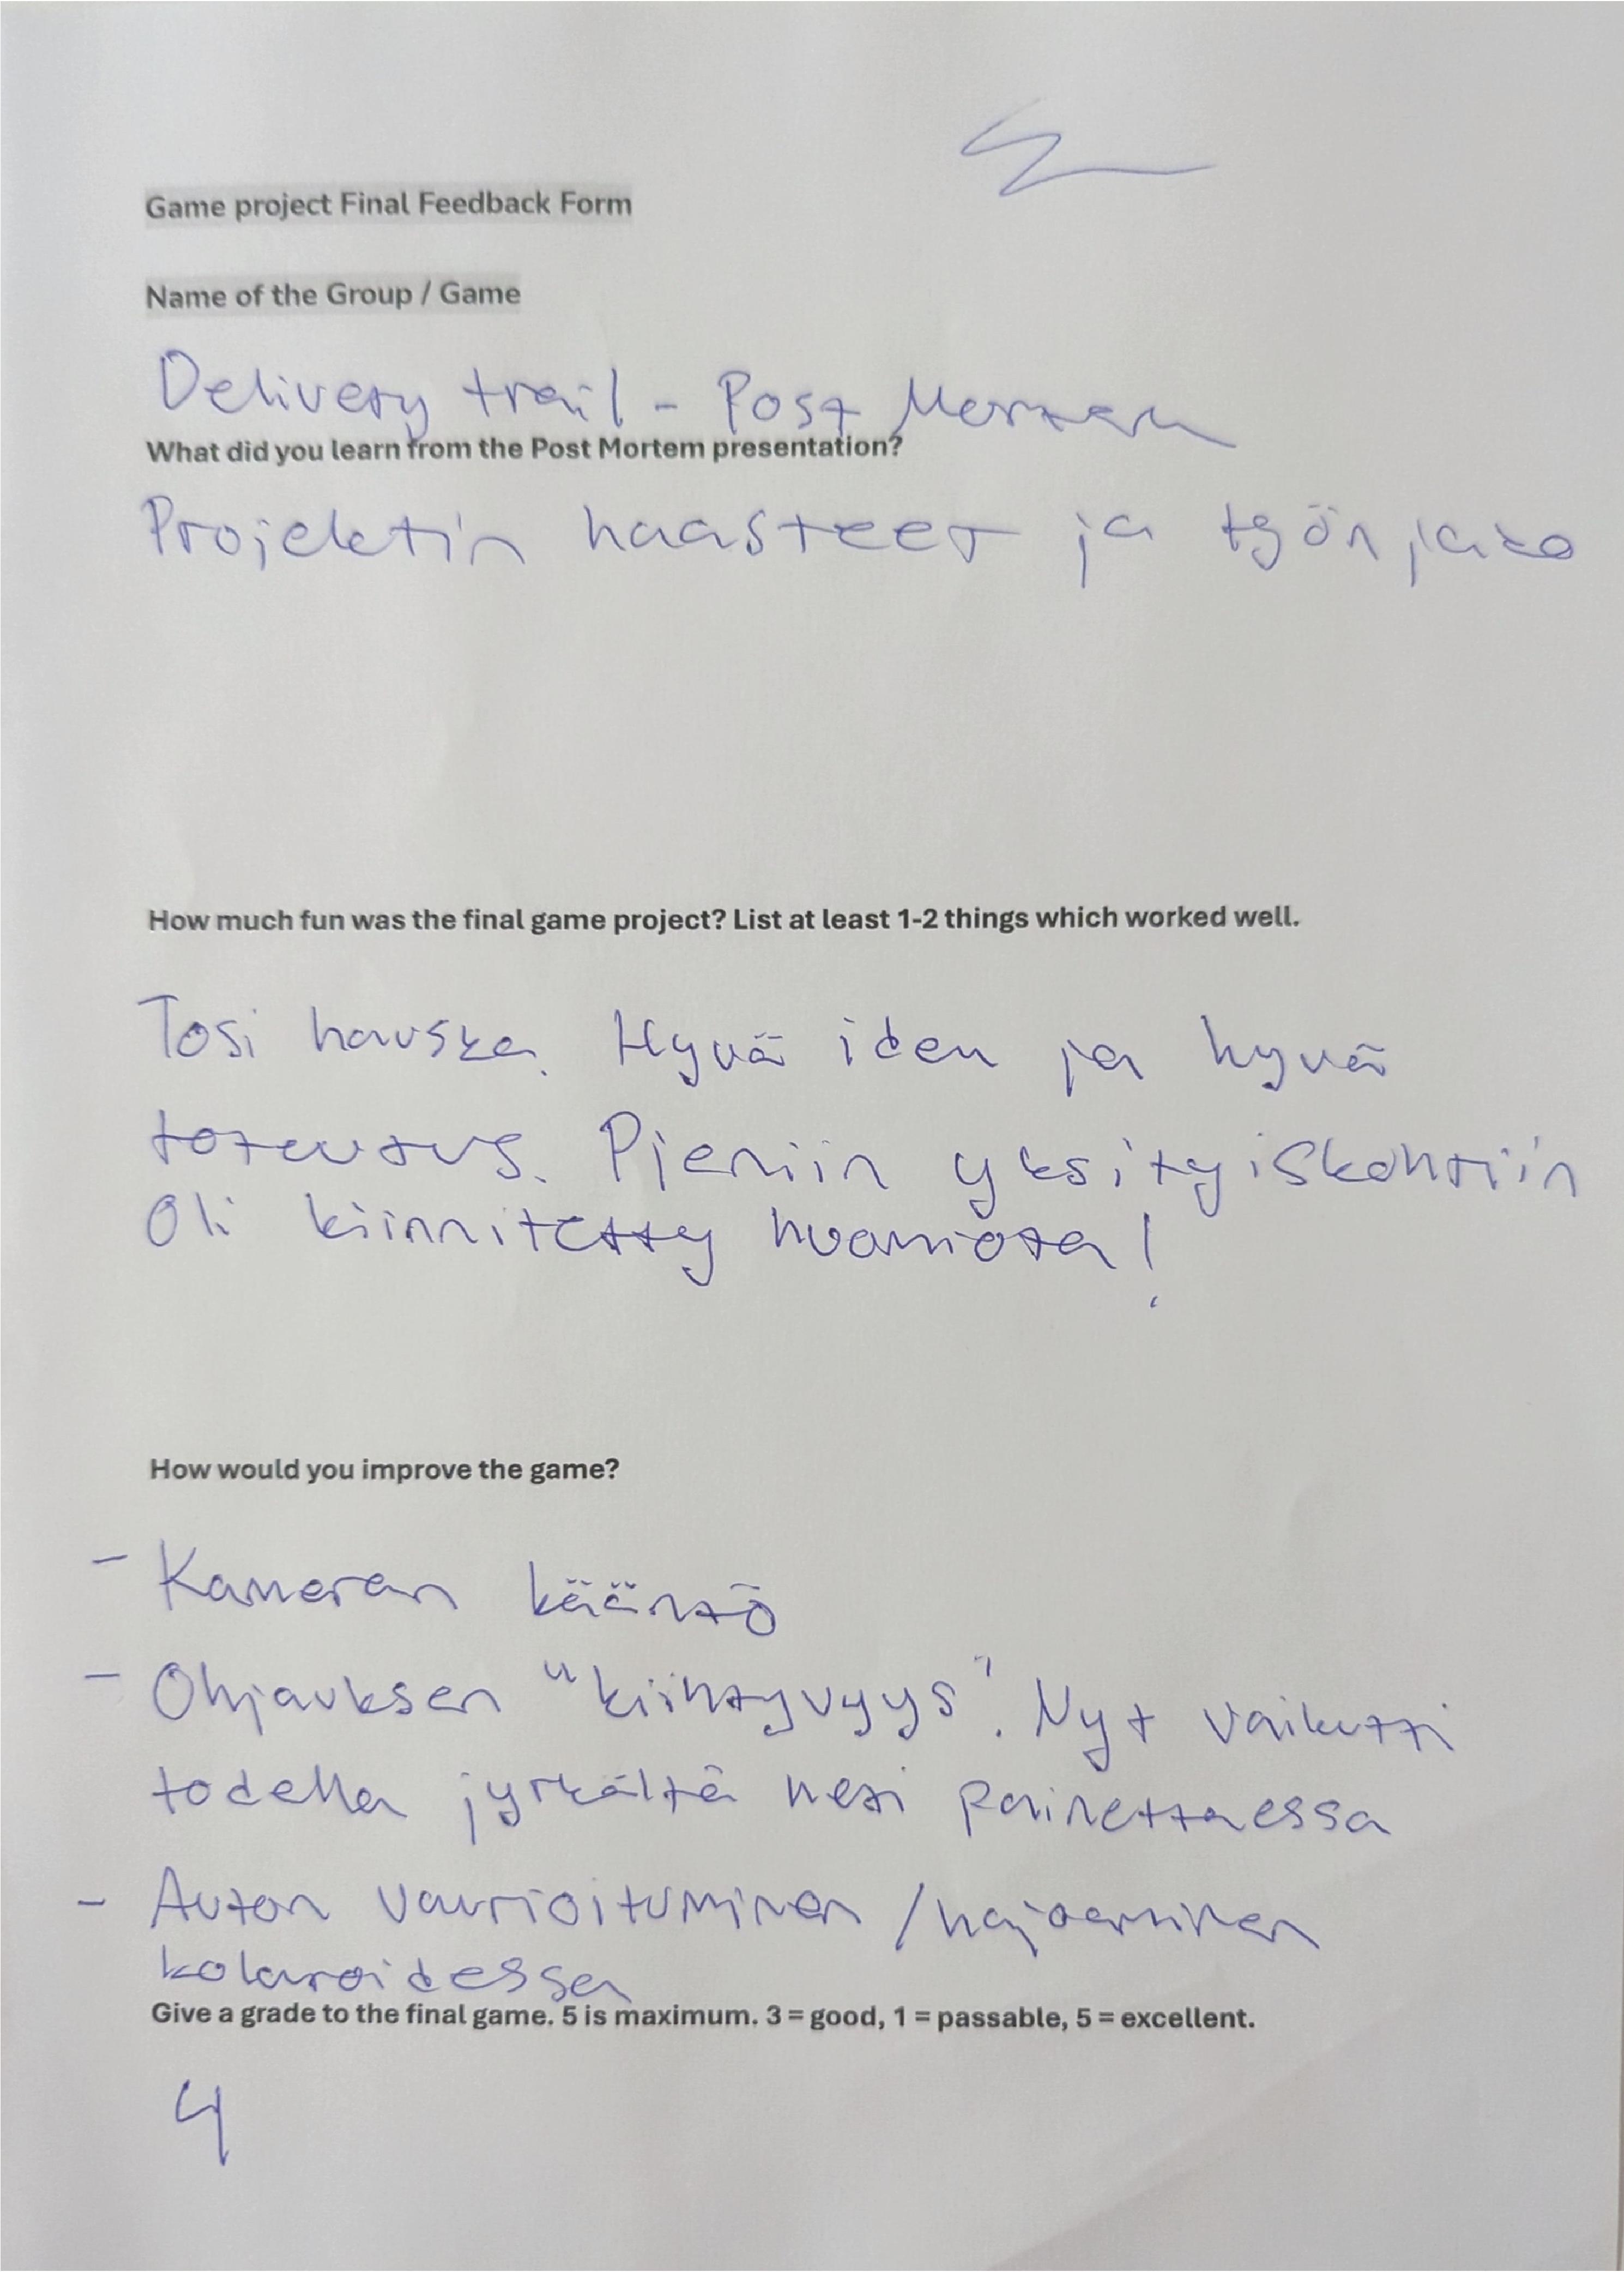 Game project Final Feedback Form
Name of the Group / Game
Delivery trail - Post Mortem
What did you learn from the Post Mortem presentation?
Projektin haasteet ja työnjako
How much fun was the final game project? List at least 1-2 things which worked well.
Tosi hauska. Hyvä idea ja hyvä
toteutus. Pieniin yksityiskohtiin
Oli kiinnitetty huomiota!
How would you improve the game?
- Kameran kääntö
- Ohjauksen "kiihtyvyys". Nyt vaikutti
todella jyrkältä heti painettaessa
- Auton vaurioituminen / hajoaminen
kolaroidessa
Give a grade to the final game. 5 is maximum. 3 = good, 1 = passable, 5 = excellent.
4